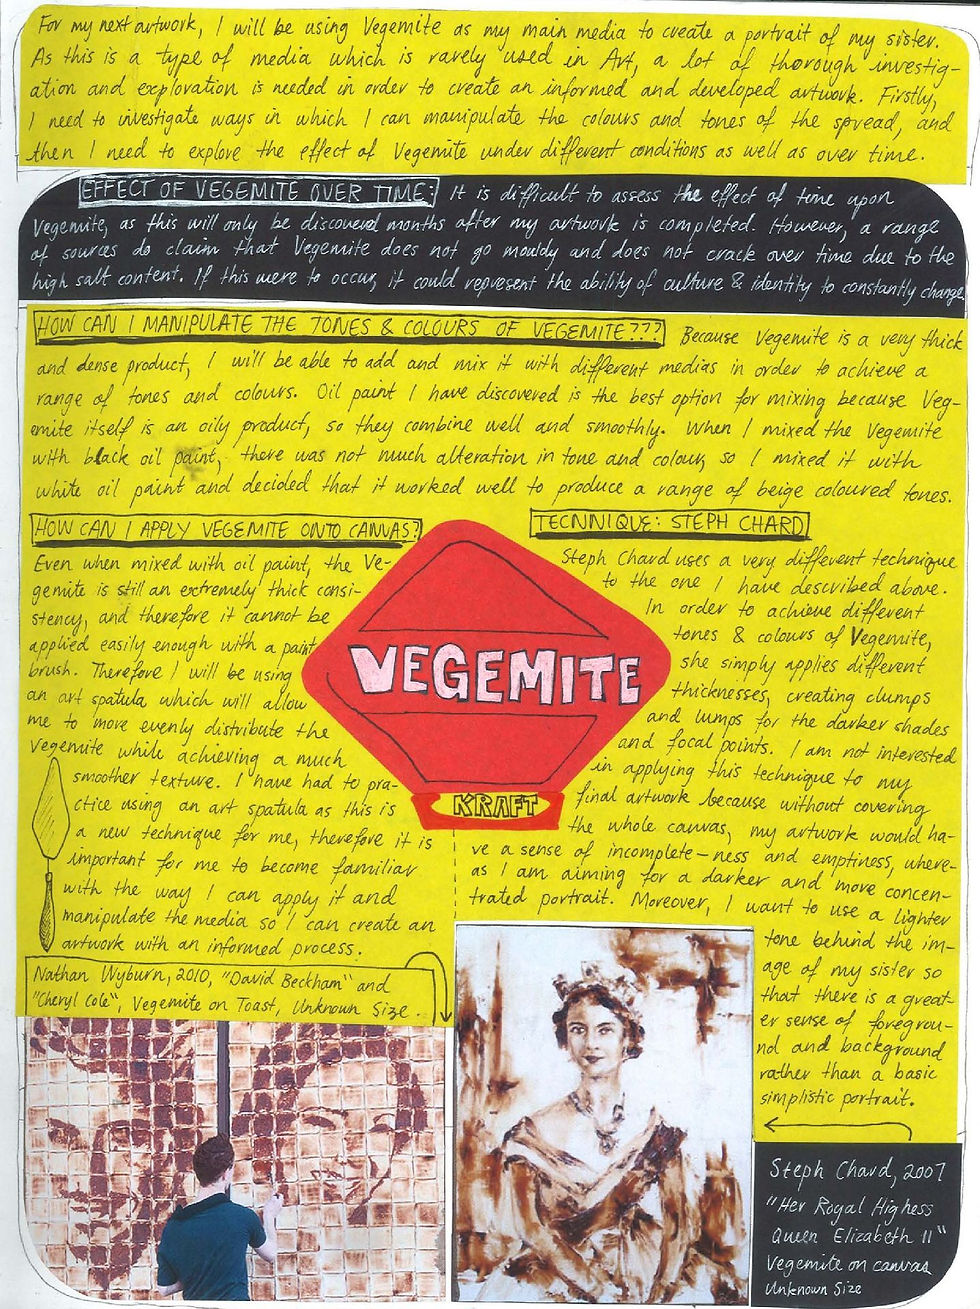 For my next artwork, I will be using Vegemite as my main media to create a portrait of my sister.
As this is a type of media which is rarely used in Art, a lot of thorough investig-
ation and exploration is needed in order to create an informed and developed artwork. Firstly,
I need to investigate ways in which I can manipulate the colours and tones of the spread, and
then I need to explore the effect of Vegemite under different conditions as well as over time.
EFFECT OF VEGEMITE OVER TIME: It is difficult to assess the effect of time upon
Vegemite, as this will only be discovered months after my artwork is completed. However, a range
of sources do claim that Vegemite does not go mouldy and does not crack over time due to the
high salt content. If this were to occur, it could represent the ability of culture & identity to constantly change.
HOW CAN I MANIPULATE THE TONES & COLOURS OF VEGEMITE??? Because Vegemite is a very thick
and dense product, I will be able to add and mix it with different medias in order to achieve a
range of tones and colours. Oil paint I have discovered is the best option for mixing because Veg-
emite itself is an oily product, so they combine well and smoothly. When I mixed the Vegemite
with black oil paint, there was not much alteration in tone and colour, so I mixed it with
white oil paint and decided that it worked well to produce a range of beige coloured tones.
HOW CAN I APPLY VEGEMITE ONTO CANVAS?
Even when mixed with oil paint, the Ve-
gemite is still an extremely thick consi-
stency, and therefore it cannot be
applied easily enough with a paint
brush. Therefore I will be using
an art spatula which will allow
me to more evenly distribute the
Vegemite while achieving a much
smoother texture. I have had to pra-
ctice using an art spatula as this is
a new technique for me, therefore it is
important for me to become familiar
with the way I can apply it and
manipulate the media so I can create an
artwork with an informed process.
VEGEMITE
KRAFT
TECNNIQUE: STEPH CHARD
Steph Chard uses a very different technique
to the one I have described above.
In order to achieve different
tones & colours of Vegemite,
she simply applies different
thicknesses, creating clumps
and lumps for the darker shades
and focal points. I am not interested
in applying this technique to my
final artwork because without covering
the whole canvas, my artwork would ha-
ve a sense of incomplete-ness and emptiness, where-
as I am aiming for a darker and more concen-
trated portrait. Moreover, I want to use a lighter
tone behind the im-
age of my sister so
that there is a great-
er sense of foregrou-
nd and background
rather than a basic
simplistic portrait.
Nathan Wyburn, 2010, "David Beckham" and
"Cheryl Cole", Vegemite on Toast, Unknown Size.
Steph Chard, 2007
"Her Royal Highess
Queen Elizabeth II"
Vegemite on canvas
Unknown Size